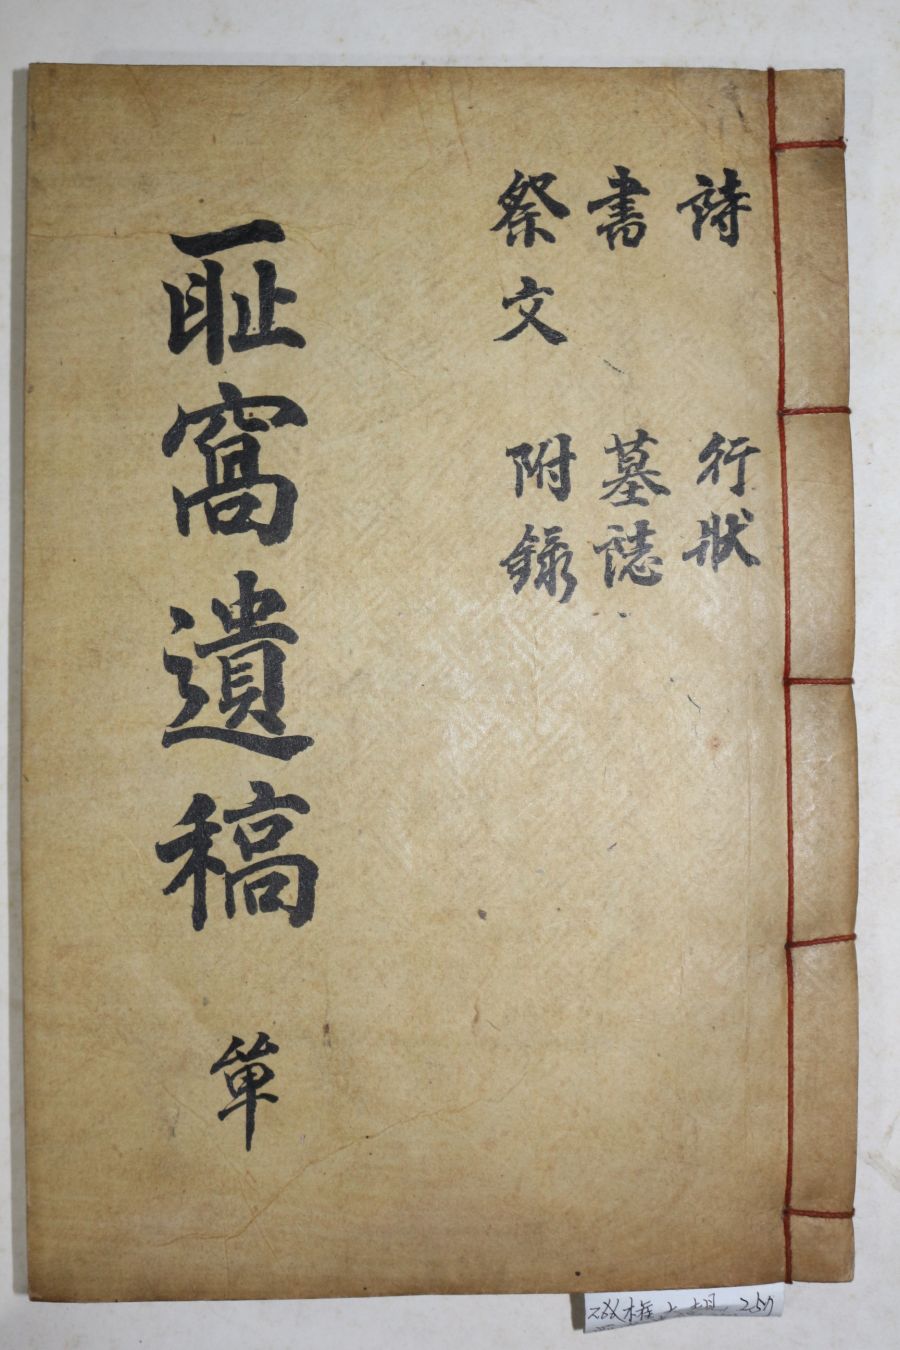 詩 行狀
書 墓誌
祭文 附錄
耻窩遺稿 單